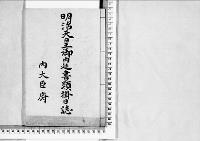 明治天皇御内廷書類掛日誌
内大臣府